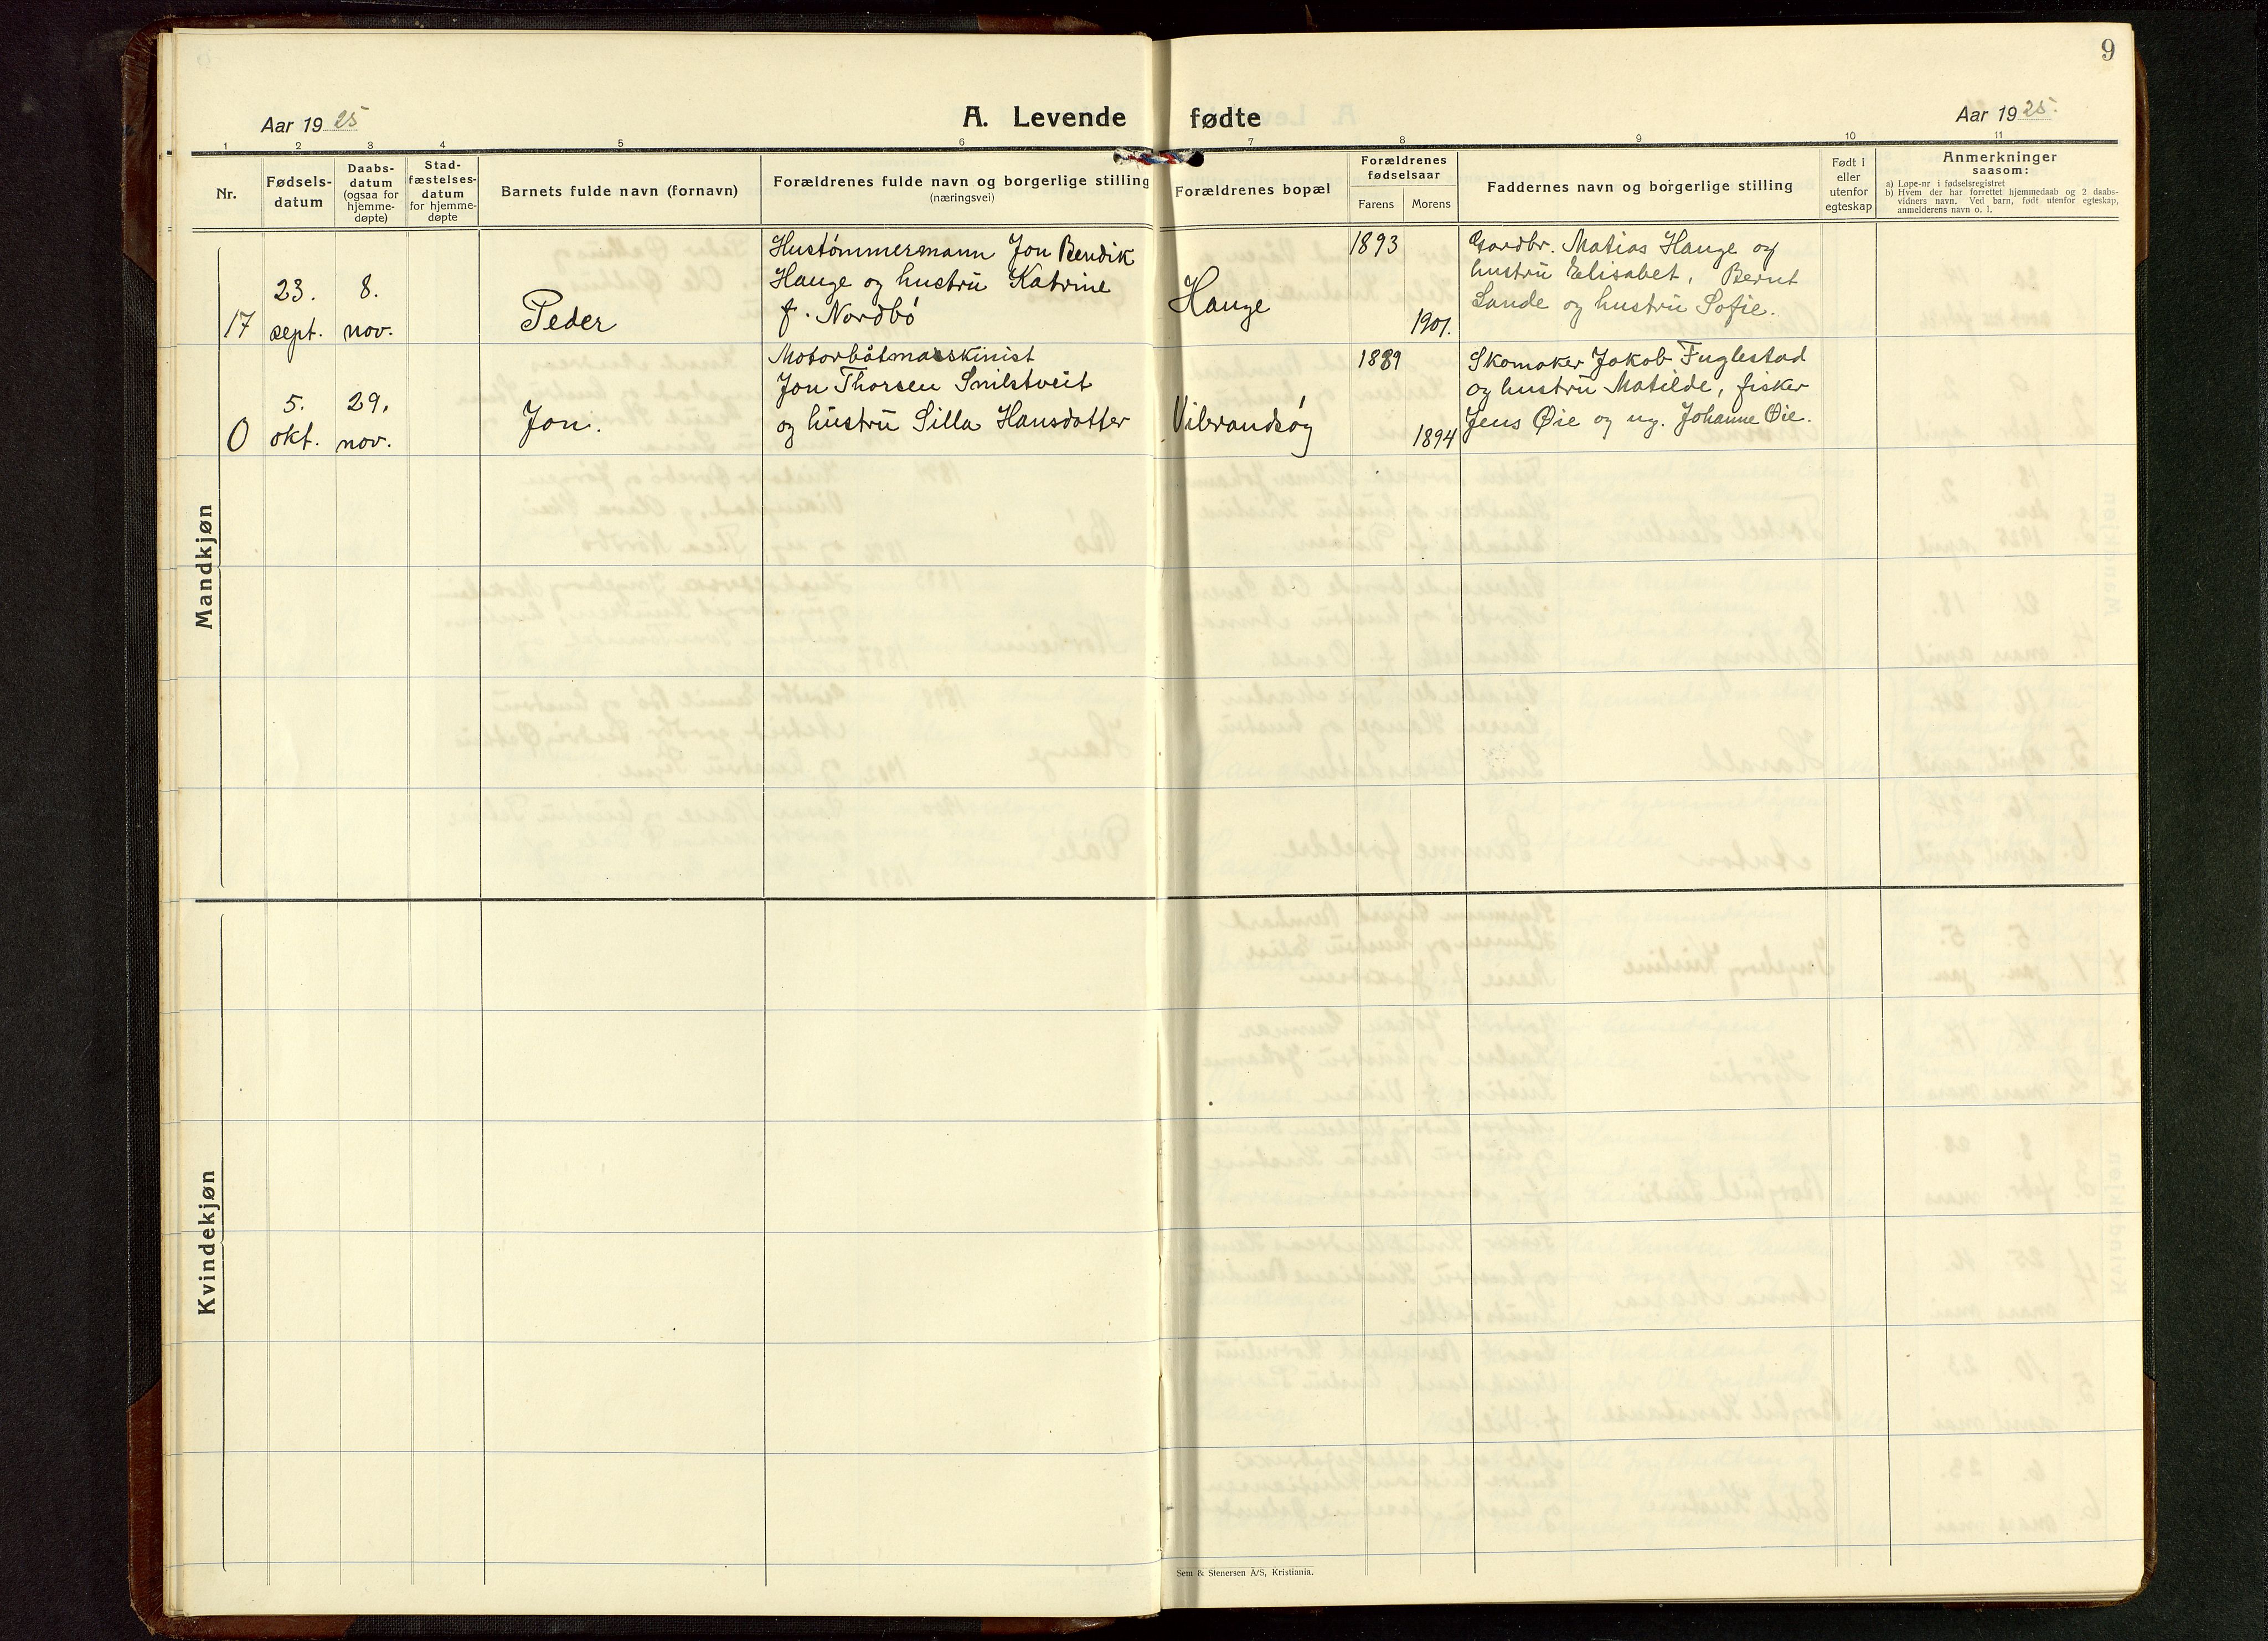 9
Aar 1925
A. Levende fødte
Aar 1925.
1 2 3 4 5 6 7 8 9 10 11
Nr.
Fødsels-
datum
Daabs-
datum
(ogsaa for
hjemme-
døpte)
Stad-
fæstelses-
datum
for hjemme-
døpte
Barnets fulde navn (fornavn)
Forældrenes fulde navn og borgerlige stilling
(næringsvei)
Forældrenes bopæl
Forældrenes
fødselsaar
Farens Morens
Faddernes navn og borgerlige stilling
Født i
eller
utenfor
egteskap
Anmerkninger
saasom:
a) Løpe-nr i fødselsregistret
b) Hvem der har forrettet hjemmedaab og 2 daabs-
vidners navn. Ved barn, født utenfor egteskap,
anmelderens navn o. l.
Mandkjøn
17
23.
sept.
8.
nov.
Peder
Hustømmermann Jon Bendik
Hauge og hustru Katrine
f. Nordbø
Hauge
1893
1901.
Gardbr. Matias Hauge og
hustru Elisabet, Bernt
Sande og hustru Sofie.
0
5.
okt.
29.
nov.
Jon.
Motorbåtmasskinist
Jon Thorsen Snilstveit
og hustru Silla Hansdatter
1889
1894
Skomaker Jakob Fuglestad
og hustru Matilde, fisker
Jens Øie og ug. Johanne Øie.
Kvindekjøn
Sem & Stenersen A/S, Kristiania.